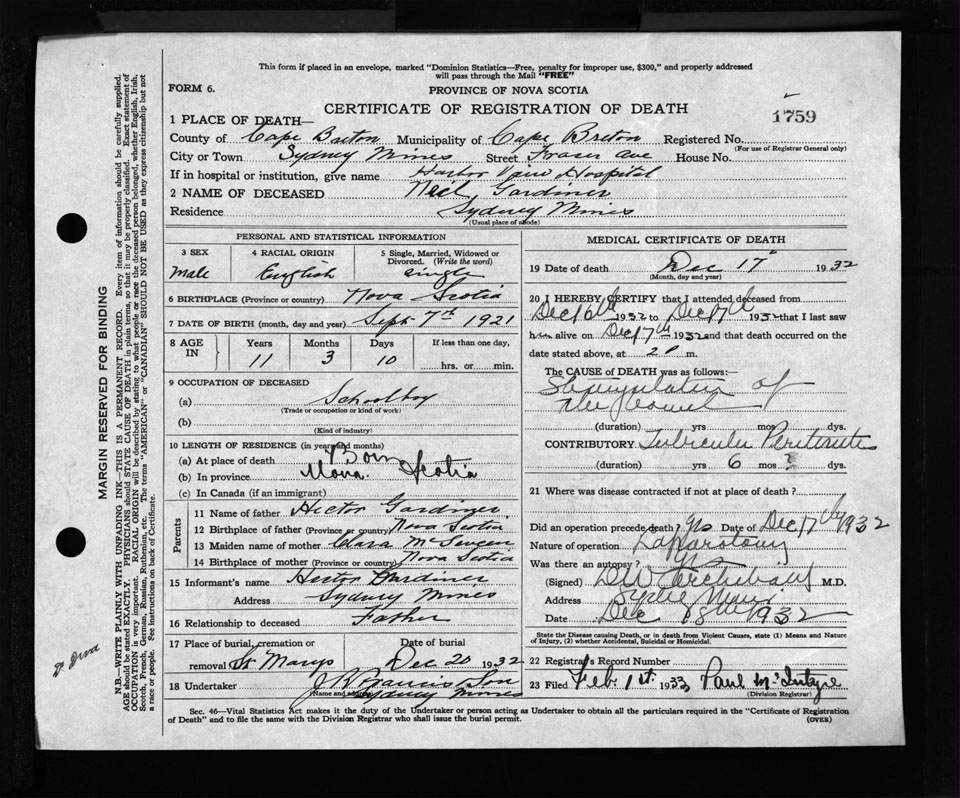 This form if placed in an envelope, marked "Dominion Statistics—Free, penalty for improper use, $300," and properly addressed
will pass through the Mail "FREE"
FORM 6.
PROVINCE OF NOVA SCOTIA
CERTIFICATE OF REGISTRATION OF DEATH
1759
1 PLACE OF DEATH—
County of Cape Breton Municipality of Cape Breton Registered No.
(For use of Registrar General only)
City or Town Sydney Mines Street Fraser Ave House No.
If in hospital or institution, give name Harbor View Hospital
2 NAME OF DECEASED Neil Gardiner
Residence Sydney Mines
(Usual place of abode)
PERSONAL AND STATISTICAL INFORMATION
3 SEX
Male
4 RACIAL ORIGIN
English
5 Single, Married, Widowed or
Divorced. (Write the word)
Single
6 BIRTHPLACE (Province or country) Nova Scotia
7 DATE OF BIRTH (month, day and year) Sept 7th 1921
8 AGE
IN
Years
11
Months
3
Days
10
If less than one day,
hrs. or min.
9 OCCUPATION OF DECEASED
(a) Schoolboy
(Trade or occupation or kind of work)
(b)
(Kind of industry)
10 LENGTH OF RESIDENCE (in years and months)
(a) At place of death Born
(b) In province Nova Scotia
(c) In Canada (if an immigrant)
Parents
11 Name of father Hector Gardiner
12 Birthplace of father (Province or country) Nova Scotia
13 Maiden name of mother
14 Birthplace of mother (Province or country) Nova Scotia
15 Informant's name Hector Gardiner
Address Sydney Mines
16 Relationship to deceased Father
17 Place of burial, cremation or
removal St Marys
Date of burial
Dec 20 1932
18 Undertaker
(Name and address) Sydney Mines
MEDICAL CERTIFICATE OF DEATH
19 Date of death Dec 17" 1932
(Month, day and year)
20 I HEREBY CERTIFY that I attended deceased from
Dec 16th 1932 to Dec 17th 1932 that I last saw
him alive on Dec 17th 1932 and that death occurred on the
date stated above, at 2 P m.
The CAUSE of DEATH was as follows:
Strangulation of
the bowel
(duration) yrs mos dys.
CONTRIBUTORY Tubercular Peritonitis
(duration) yrs 6 mos dys.
21 Where was disease contracted if not at place of death?
Did an operation precede death? Yes Date of Dec 17th 1932
Nature of operation Laparotomy
Was there an autopsy?
(Signed) D W Archibald M.D.
Address Sydney Mines
Date Dec 18th 1932
State the Disease causing Death, or in death from Violent Causes, state (1) Means and Nature
of Injury, (2) whether Accidental, Suicidal or Homicidal.
22 Registrar's Record Number
23 Filed Feb. 1st 1933 Paul McIntyre
(Division Registrar)
Sec. 46—Vital Statistics Act makes it the duty of the Undertaker or person acting as Undertaker to obtain all the particulars required in the "Certificate of Registration
of Death" and to file the same with the Division Registrar who shall issue the burial permit.
(OVER)
MARGIN RESERVED FOR BINDING
N.B.—WRITE PLAINLY WITH UNFADING INK—THIS IS A PERMANENT RECORD. Every item of information should be carefully supplied.
AGE should be stated EXACTLY. PHYSICIANS should STATE CAUSE OF DEATH in plain terms, so that it may be properly classified. Exact statement of
OCCUPATION is very important. RACIAL ORIGIN will be described by stating to what people or race the deceased person belonged, whether English, Irish,
Scotch, French, German, Russian, Ruthenian, etc. The terms "AMERICAN" or "CANADIAN" SHOULD NOT BE USED as they express citizenship but not
a race or people. See instructions on back of Certificate.